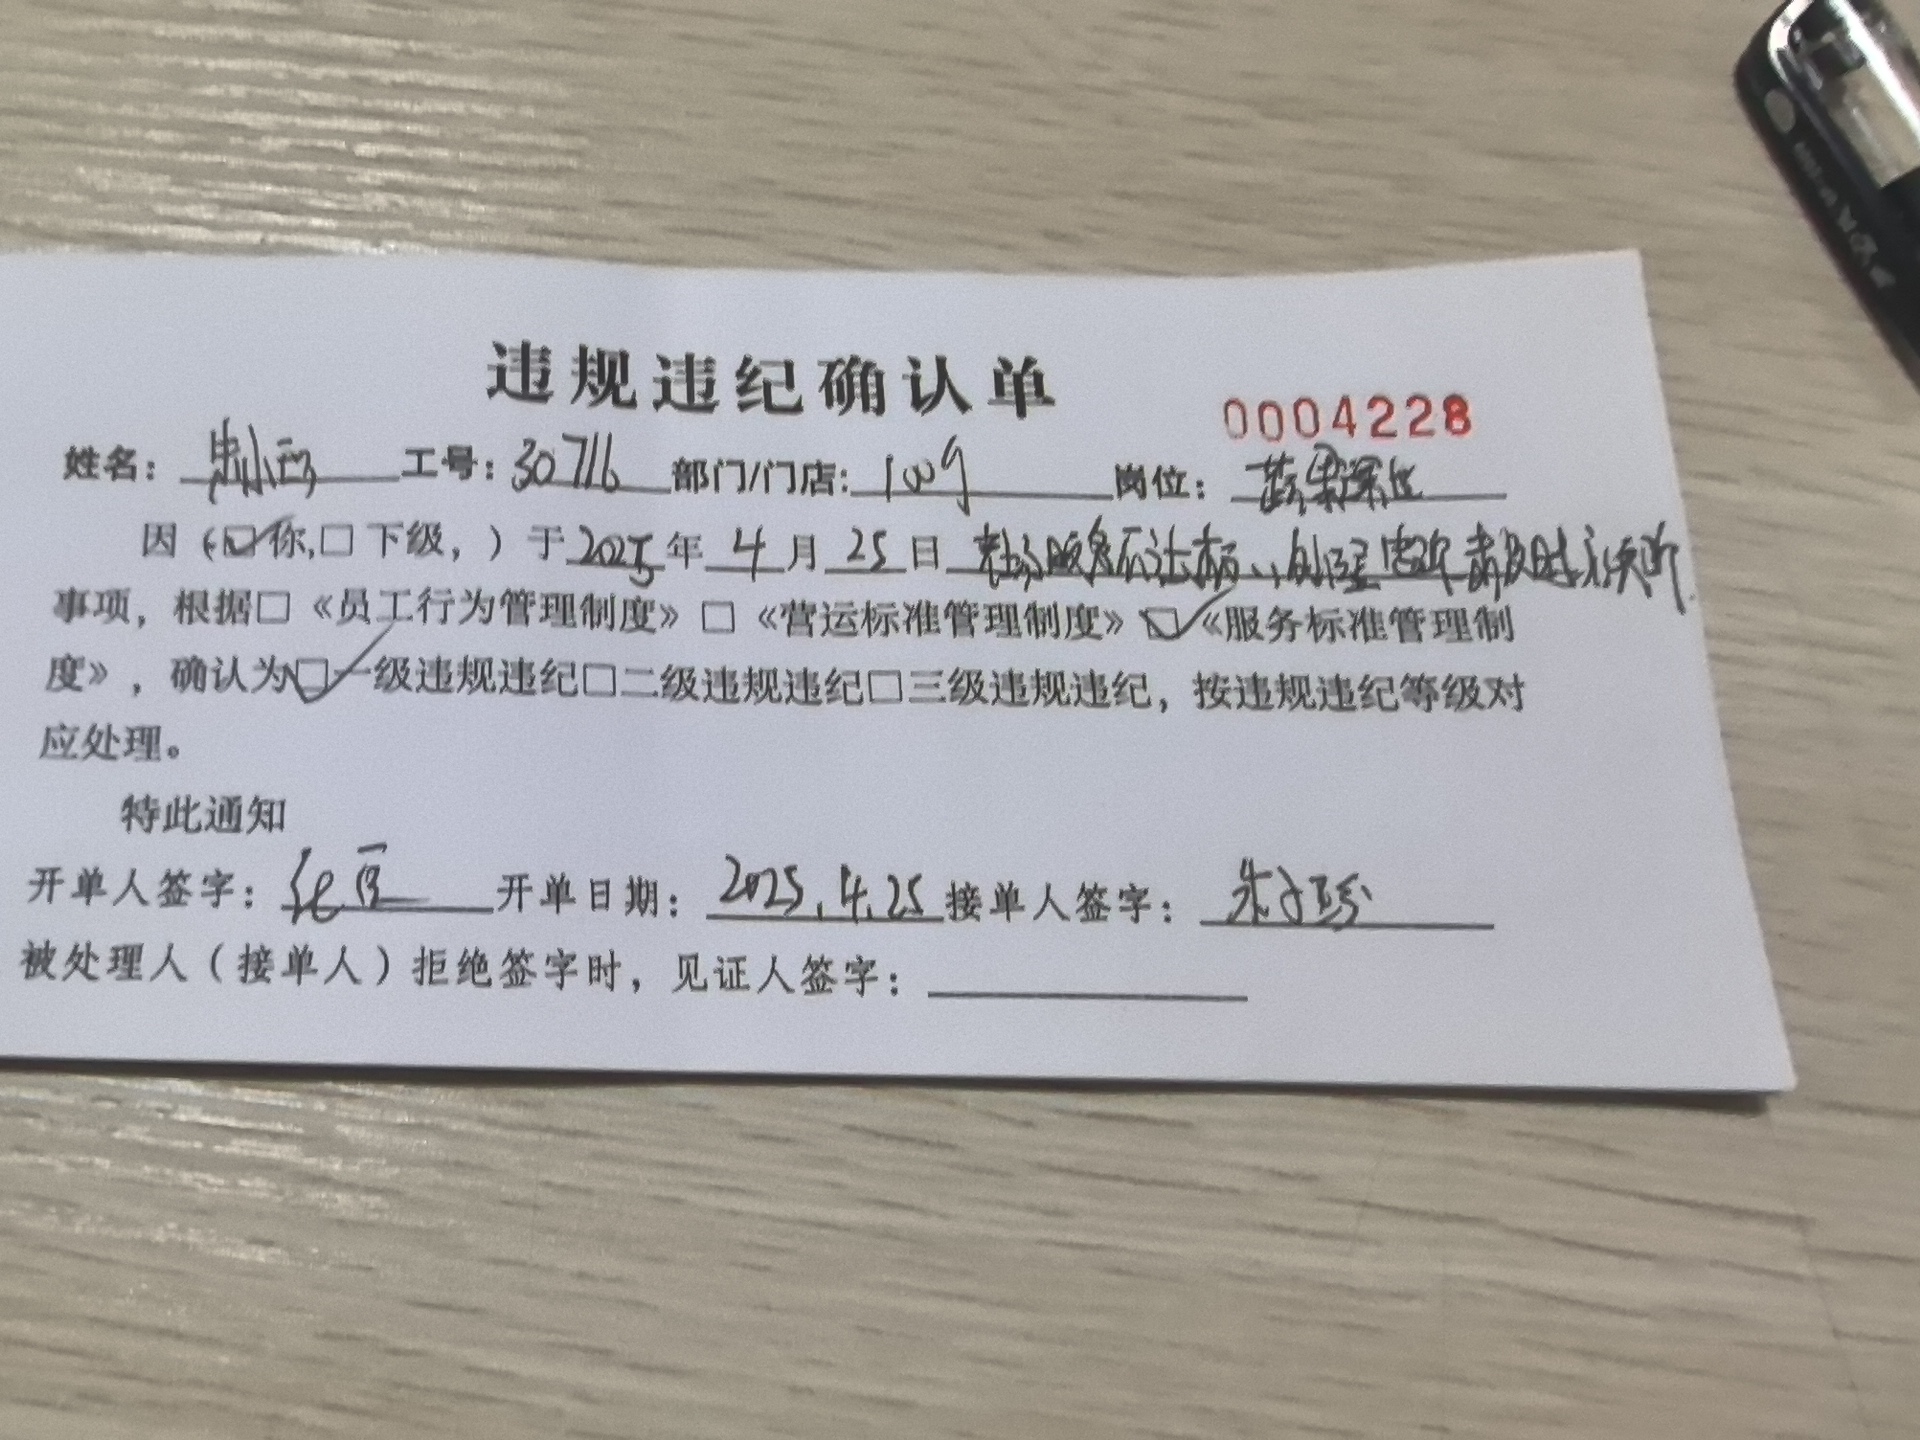 违规违纪确认单
0004228
姓名： 工号：30716 部门/门店：1009 岗位：蔬果
因（☑你,□下级，）于2025年4月25日 服务不达标
事项，根据□《员工行为管理制度》□《营运标准管理制度》☑《服务标准管理制
度》，确认为☑一级违规违纪□二级违规违纪□三级违规违纪，按违规违纪等级对
应处理。
特此通知
开单人签字： 开单日期：2025.4.25 接单人签字：
被处理人（接单人）拒绝签字时，见证人签字：